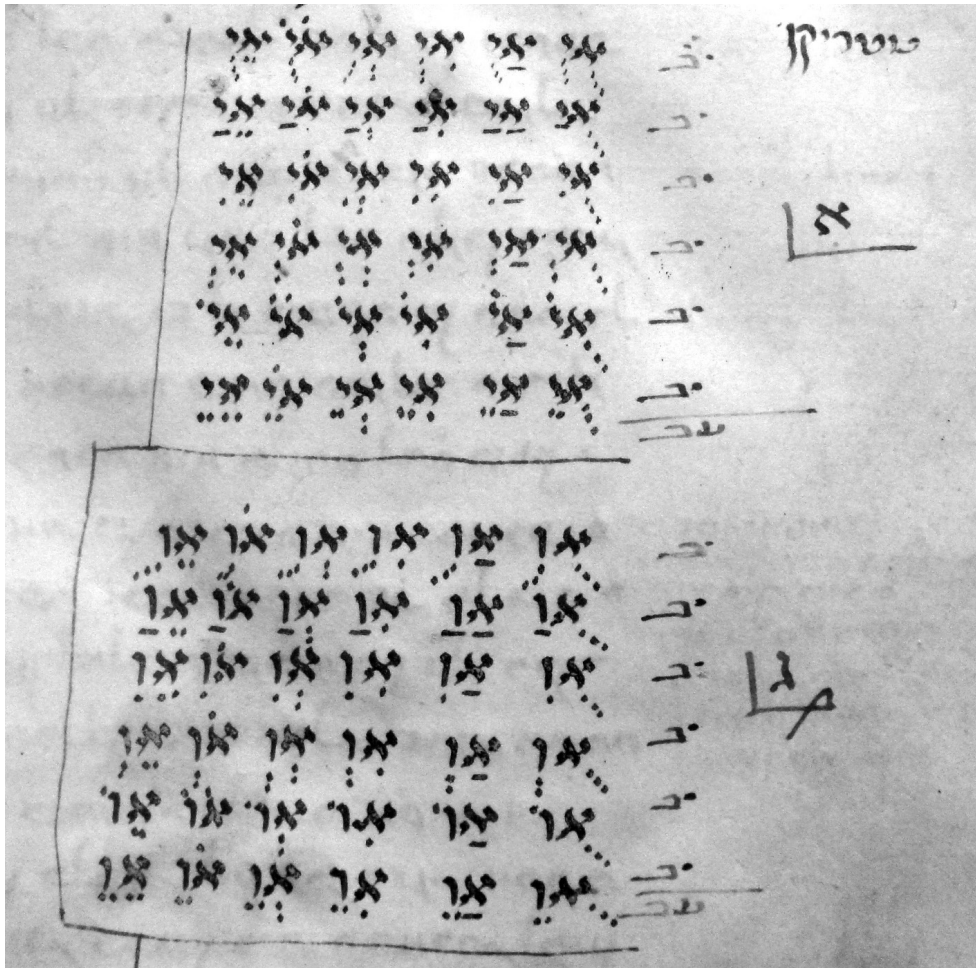 אי אי אי אי אי אי יב
אי אי אי אי אי אי יב
אי אי אי אי אי אי יב
א
אי אי אי אי אי אי יב
אי אי אי אי אי אי יב
אי אי אי אי אי אי יב
עב
או או או או או או יב
או או או או או או יב
או או או או או או יב
ג
או או או או או או יב
או או או או או או יב
או או או או או או יב
עב